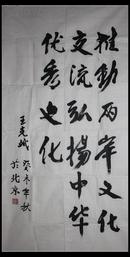 推動两岸文化
交流弘揚中华
优秀文化
王克
癸未年秋
於北京